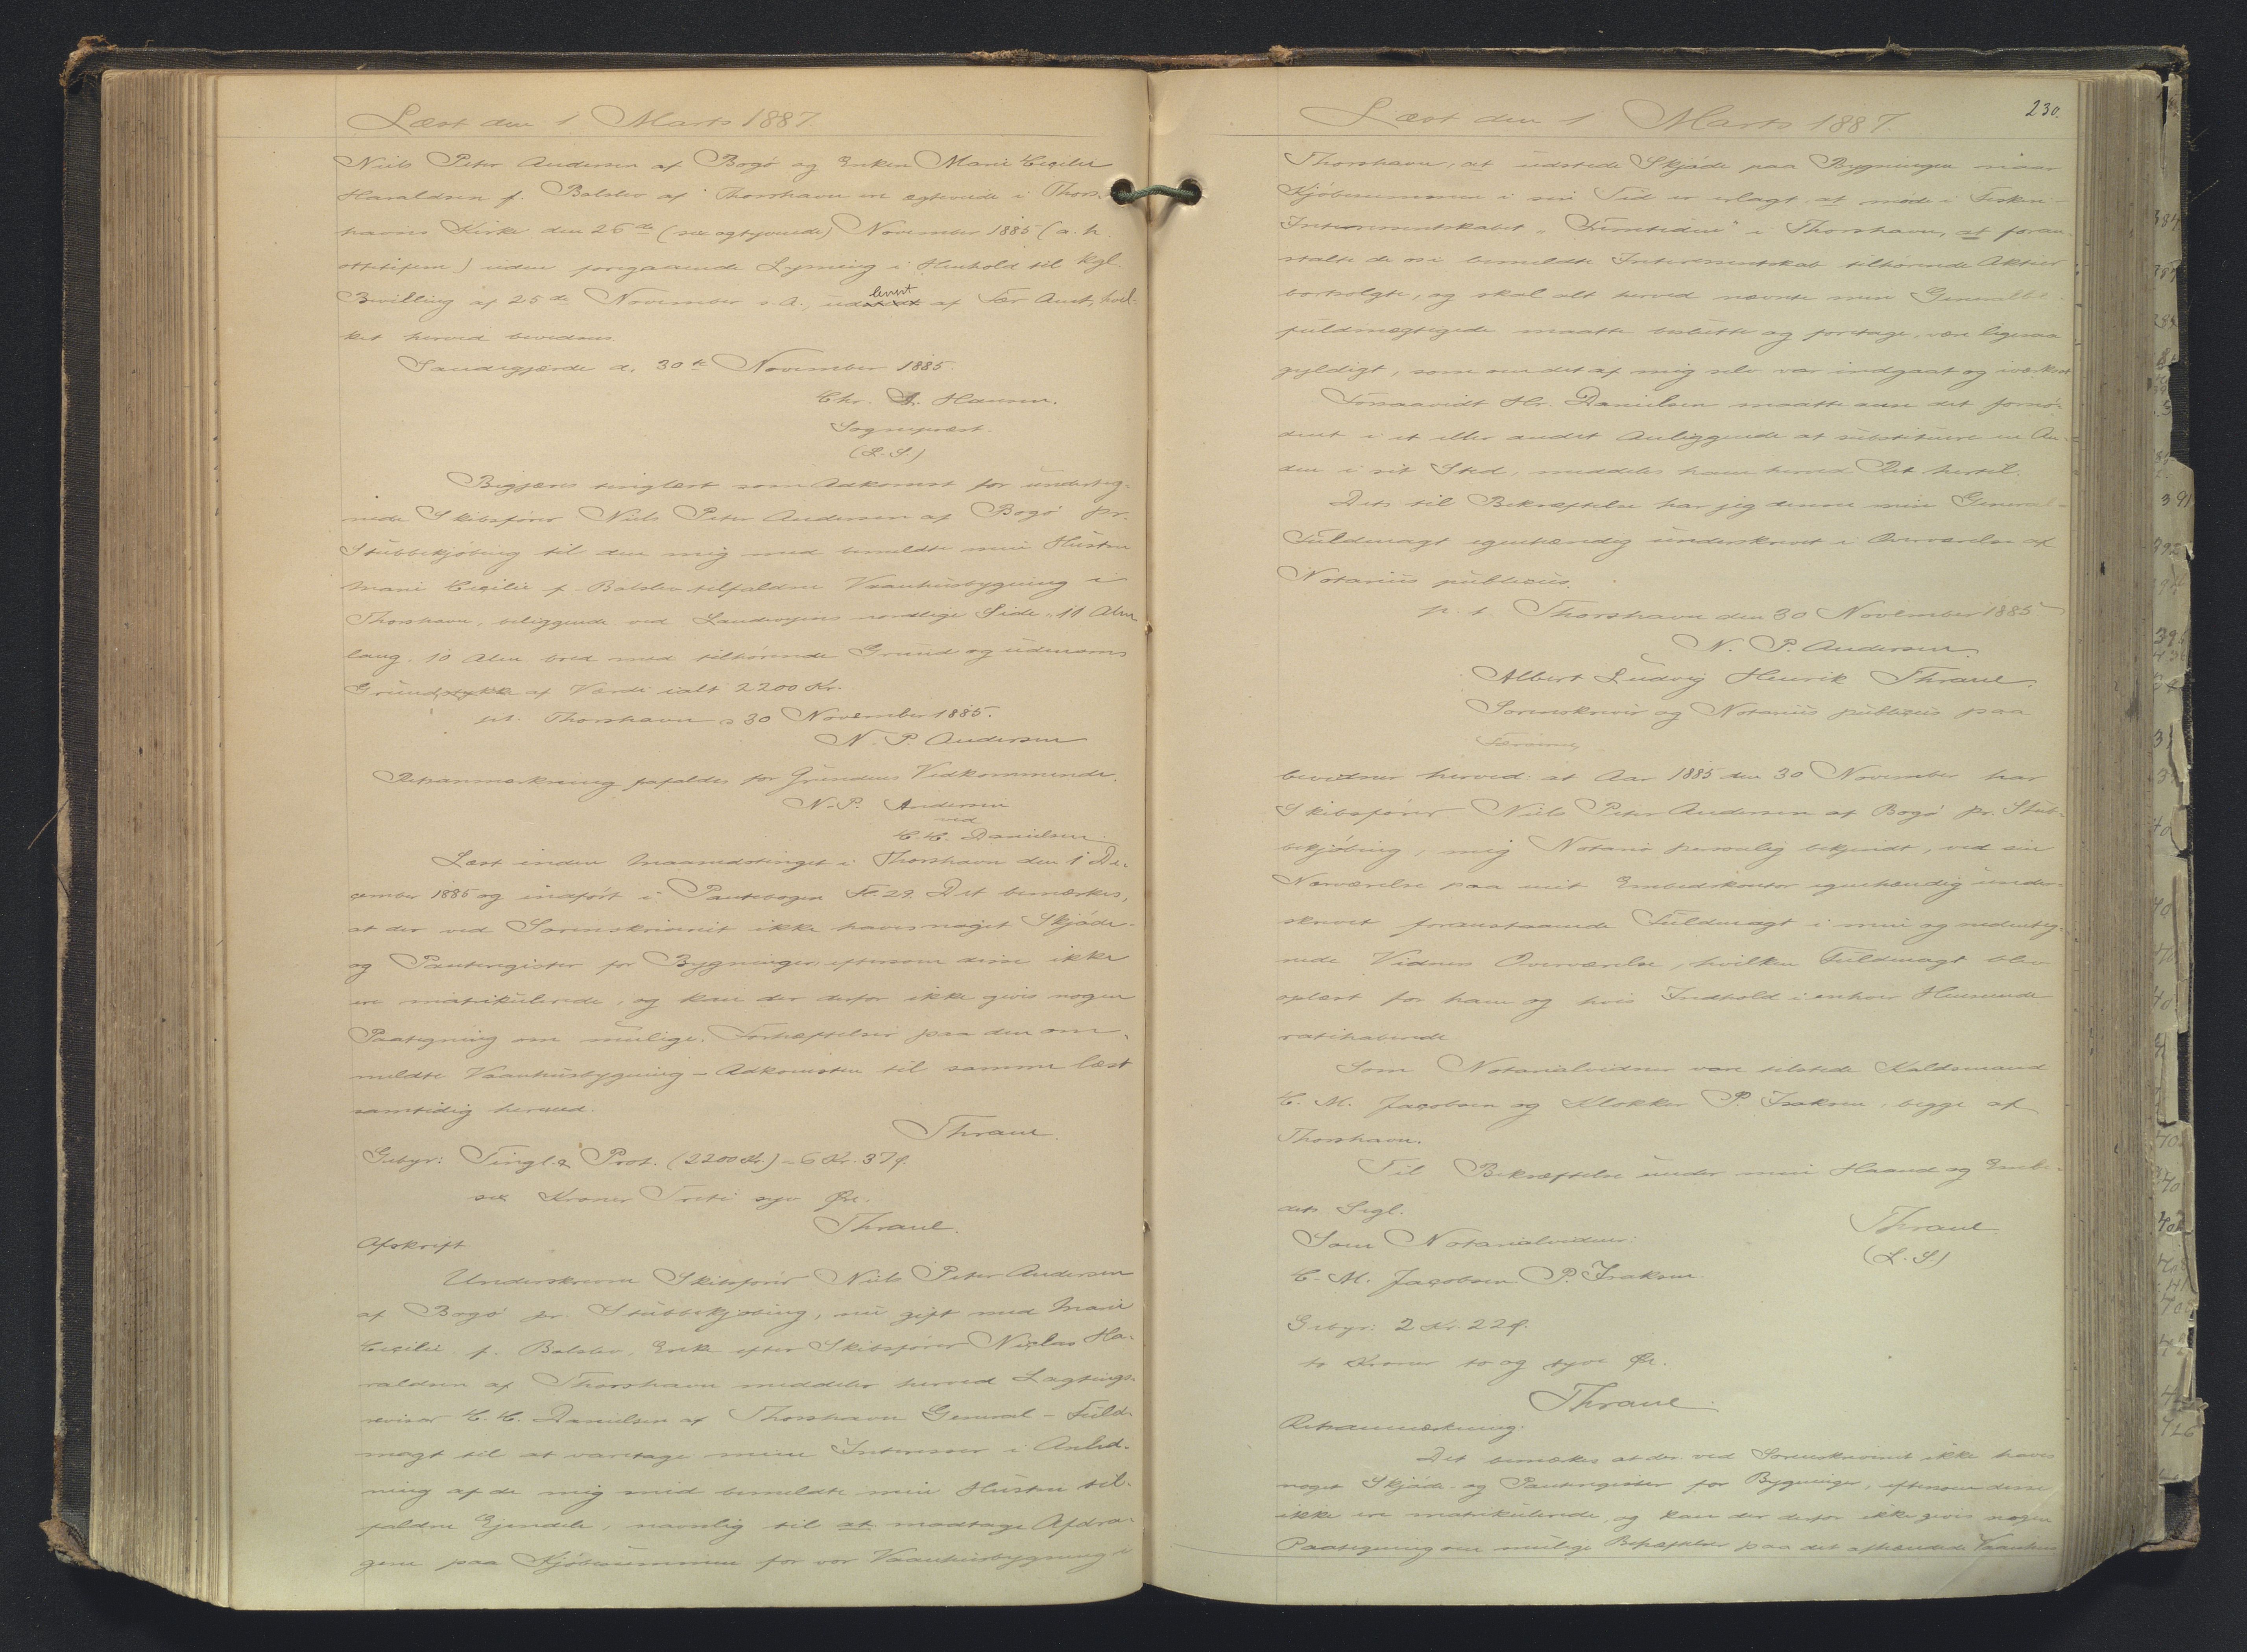 Læst den 1 Marts 1887.
Niels Peter Andersen af Bogø og Enken Marie Cecilie
Haraldsen f. Balslev af Thorshavn ere ægteviede i Thors-
havns Kirke den 26de (sex og tyvende) November 1885 (a. h.
ottitifem) uden foregaaende Lysning i Henhold til Kgl.
Bevilling af 25de November s. A., udlevert af Fær Amt, hvil-
ket herved bevidnes.
Sandegjærde d. 30te November 1885.
Chr. A. Hansen.
Sognepræst.
(L. S.)
Begjæres tinglæst som Adkomst for underteg-
nede Skibsfører Niels Peter Andersen af Bogø pr.
Stubbekjøbing til den mig med bemeldte min Hustru
Marie Cecilie f. Balslev tilfaldne Vaanhusbygning i
Thorshavn, beliggende ved Landevejens nordlige Side, 11 Alen
lang, 10 Alen bred med tilhørende Grund og udenoms
Grundstykke af Værdi ialt 2200 Kr.
pt. Thorshavn d 30 November 1885.
N. P. Andersen
Retsanmærkning frafaldes for Grundens Vedkommende.
N. P. Andersen
ved
C. C. Danielsen.
Læst inden Maanedstinget i Thorshavn den 1 De-
cember 1885 og indført i Pantebogen Fo. 29. Det bemærkes,
at der ved Sorenskriveriet ikke haves noget Skjøde-
og Panteregister for Bygninger eftersom disse ikke
ere matrikulerede, og kan der derfor ikke gives nogen
Paategning om mulige Forhæftelser paa den om-
meldte Vaanhusbygning - Adkomsten til samme læst
samtidig herved.
Thrane.
Gebyr: Tingl. & Prot. (2200 Kr.) - 6 Kr. 37 ø.
sex Kroner Treti syv Øre.
Thrane.
Afskrift
Underskrevne Skibsfører Niels Peter Andersen
af Bogø pr. Stubbekjøbing, nu gift med Marie
Cecilie f. Balslev, Enke efter Skibsfører Niclas Ha-
raldsen af Thorshavn meddeler herved Lagtings-
revisor C. C. Danielsen af Thorshavn General-Fuld-
magt til at varetage mine Interesser i Anled-
ning af de mig med bemeldte min Hustru til-
faldne Ejendele, navnlig til at modtage Afdra-
gene paa Kjøbesummen for vor Vaanhusbygning i
230.
Læst den 1 Marts 1887.
Thorshavn, at udstede Skjøde paa Bygningen naar
Kjøbesummen i sin Tid er erlagt at møde i Fiskeri-
Interessentskabet "Fremtiden" i Thorshavn, at foran-
stalte de os i bemeldte Interessentskab tilhørende Aktier
bortsolgte, og skal alt herved nævnte min Generalbe-
fuldmægtigede maatte beslutte og foretage, være ligesaa
gyldigt, som om det af mig selv var indgaaet og iværksat
Forsaavidt Hr. Danielsen maatte anse det fornø-
dent i et eller andet Anliggende at substituere en An-
den i sit Sted, meddeles ham herved Ret hertil.
Dets til Bekræftelse har jeg denne min General-
Fuldmagt egenhændig underskrevet i Overværelse af
Notarius publicus.
p. t. Thorshavn den 30 November 1885
N. P. Andersen.
Albert Ludvig Henrik Thrane.
Sorenskriver og Notarius publicus paa
Færøerne,
bevidner herved: at Aar 1885 den 30 November har
Skibsfører Niels Peter Andersen af Bogø pr. Stub-
bekjøbing, mig Notario personlig bekjendt, ved sin
Nærværelse paa mit Embedskontor egenhændig under-
skrevet foranstaaende Fuldmagt i min og nedenteg-
nede Vidners Overværelse, hvilken Fuldmagt blev
oplæst for ham og hvis Indhold i enhver Henseende
ratihaberede
Som Notarialvidner vare tilstede Kaldsmand
C. M. Jacobsen og Klokker P. Isaksen, begge af
Thorshavn.
Til Bekræftelse under min Haand og Embe-
dets Segl.
Thrane
(L. S)
Som Notarialvidner:
C. M. Jacobsen. P. Isaksen.
Gebyr: 2 Kr. 22 ø.
to Kroner to og tyve Øre.
Thrane.
Retsanmærkning.
Det bemærkes at der ved Sorenskriveriet ikke haves
noget Skjøde- og Panteregister for Bygninger, eftersom disse
ikke ere matrikulerede, og kan der derfor ikke gives nogen
Paategning om mulige Behæftelser paa det afhændede Vaanhus